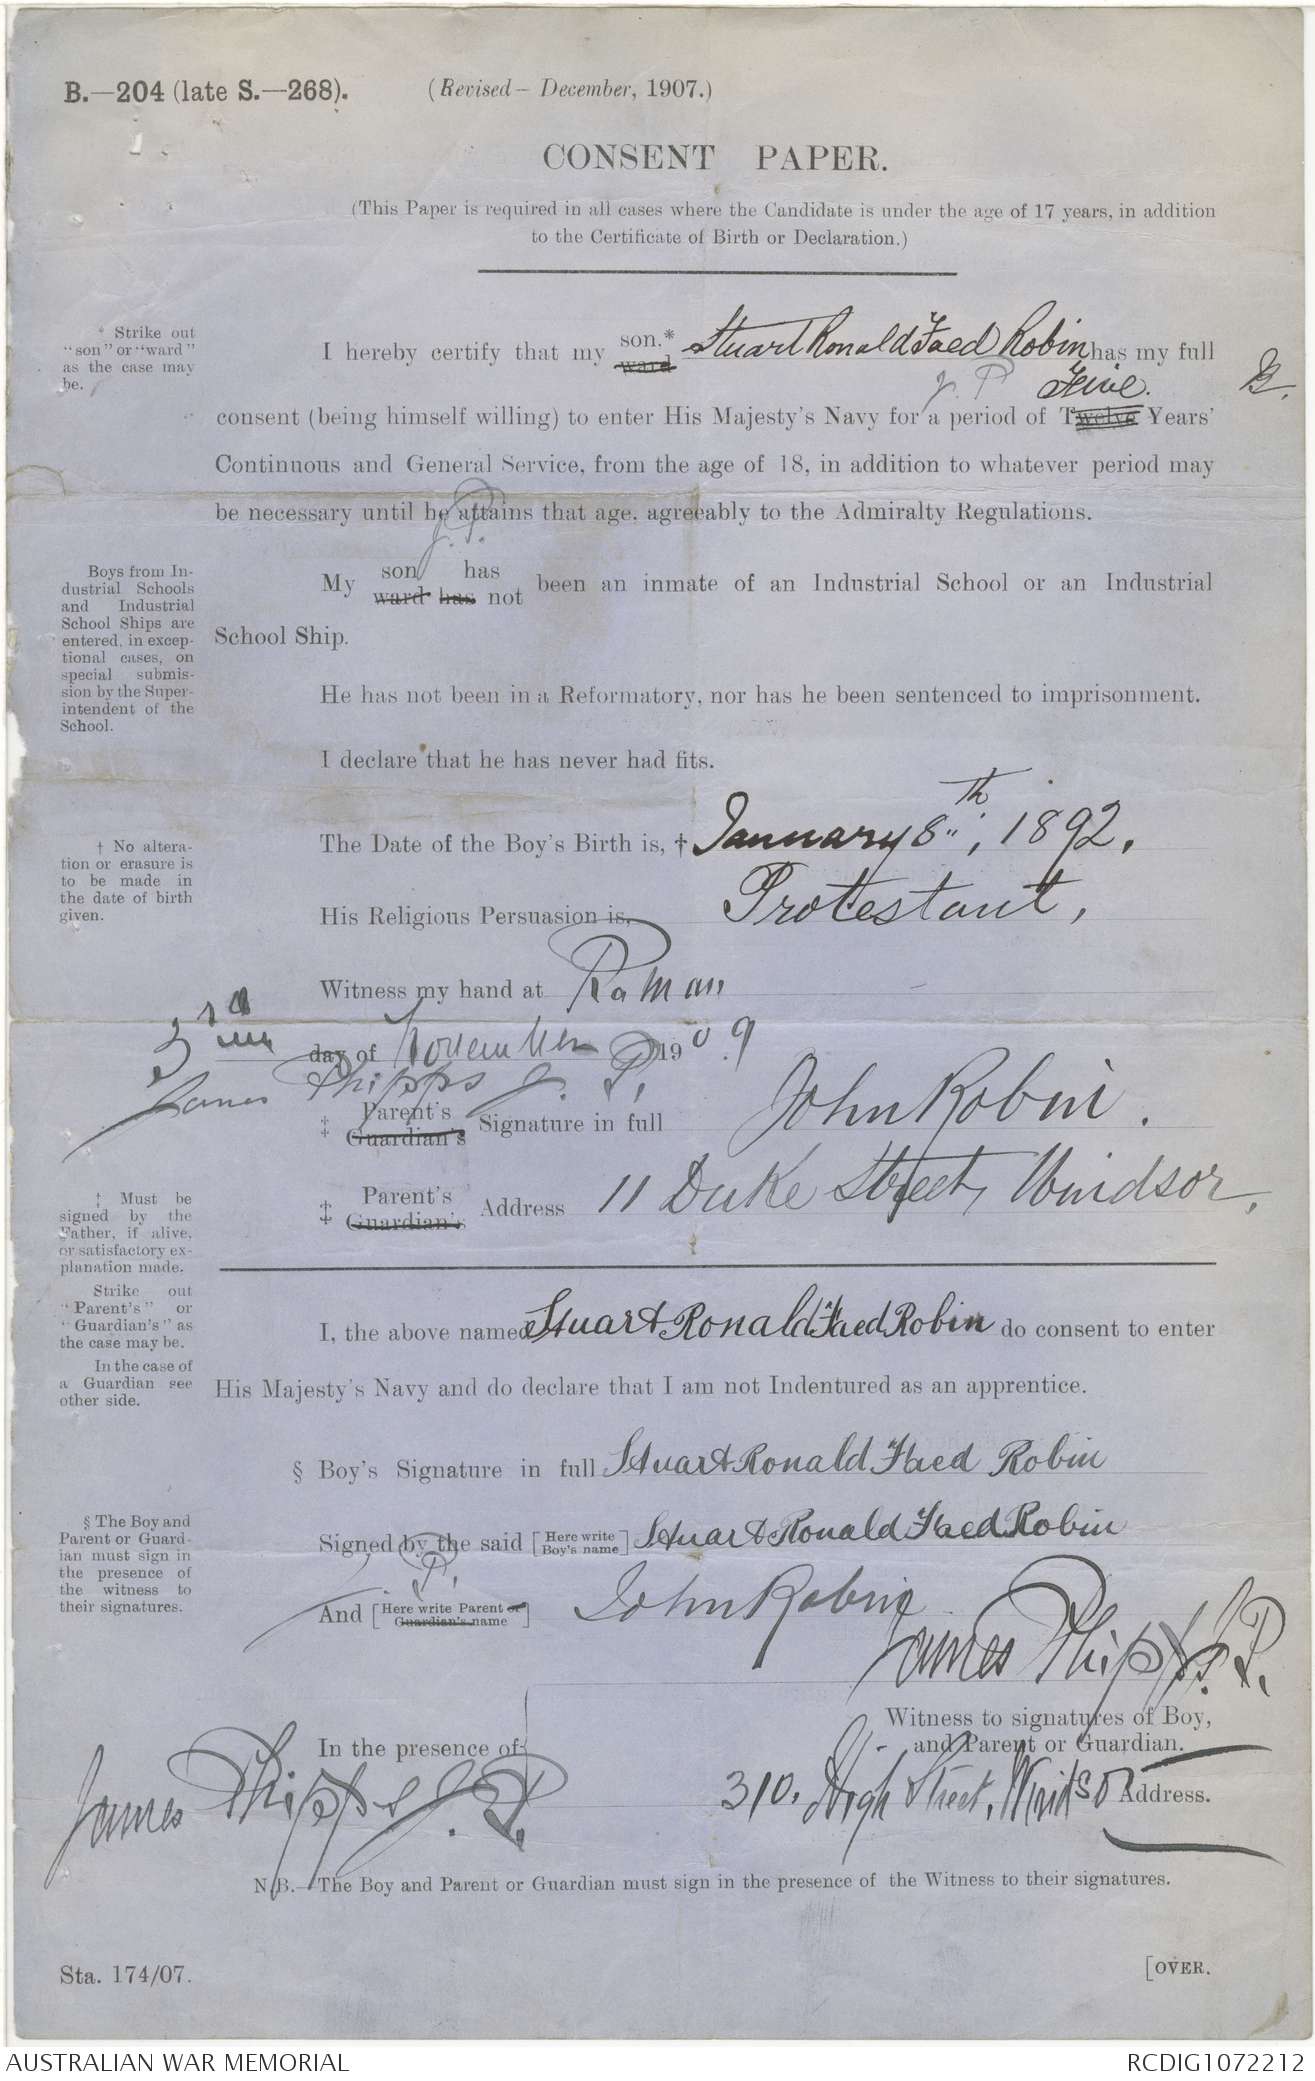 B.—204 (late S.—268). (Revised – December, 1907.)
CONSENT PAPER.
(This Paper is required in all cases where the Candidate is under the age of 17 years, in addition
to the Certificate of Birth or Declaration.)
* Strike out
"son" or "ward"
as the case may
be.
I hereby certify that my son.* ward Stuart Ronald Faed Robin has my full
J. P. Five.
consent (being himself willing) to enter His Majesty's Navy for a period of Twelve Years'
Continuous and General Service, from the age of 18, in addition to whatever period may
be necessary until he attains that age, agreeably to the Admiralty Regulations.
J. P.
Boys from In-
dustrial Schools
and Industrial
School Ships are
entered, in excep-
tional cases, on
special submis-
sion by the Super-
intendent of the
School.
My son has
ward has not been an inmate of an Industrial School or an Industrial
School Ship.
He has not been in a Reformatory, nor has he been sentenced to imprisonment.
I declare that he has never had fits.
† No altera-
tion or erasure is
to be made in
the date of birth
given.
The Date of the Boy's Birth is, † January 8th, 1892.
His Religious Persuasion is, Protestant,
Witness my hand at
3rd day of November 1909
James Phipps J. P.
‡ Parent's
Guardian's Signature in full John Robin.
‡ Parent's
Guardian's Address 11 Duke Street, Windsor,
‡ Must be
signed by the
Father, if alive,
or satisfactory ex-
planation made.
Strike out
"Parent's" or
"Guardian's" as
the case may be.
In the case of
a Guardian see
other side.
I, the above named Stuart Ronald Faed Robin do consent to enter
His Majesty's Navy and do declare that I am not Indentured as an apprentice.
§ Boy's Signature in full Stuart Ronald Faed Robin
§ The Boy and
Parent or Guard-
ian must sign in
the presence of
the witness to
their signatures.
Signed by the said [Here write Boy's name] Stuart Ronald Faed Robin
And [Here write Parent or Guardian's name] John Robin
James Phipps J. P.
Witness to signatures of Boy,
and Parent or Guardian.
In the presence of
James Phipps J. P.
310, High Street, Windsor Address.
N.B.—The Boy and Parent or Guardian must sign in the presence of the Witness to their signatures.
Sta. 174/07.
[OVER.
AUSTRALIAN WAR MEMORIAL RCDIG1072212